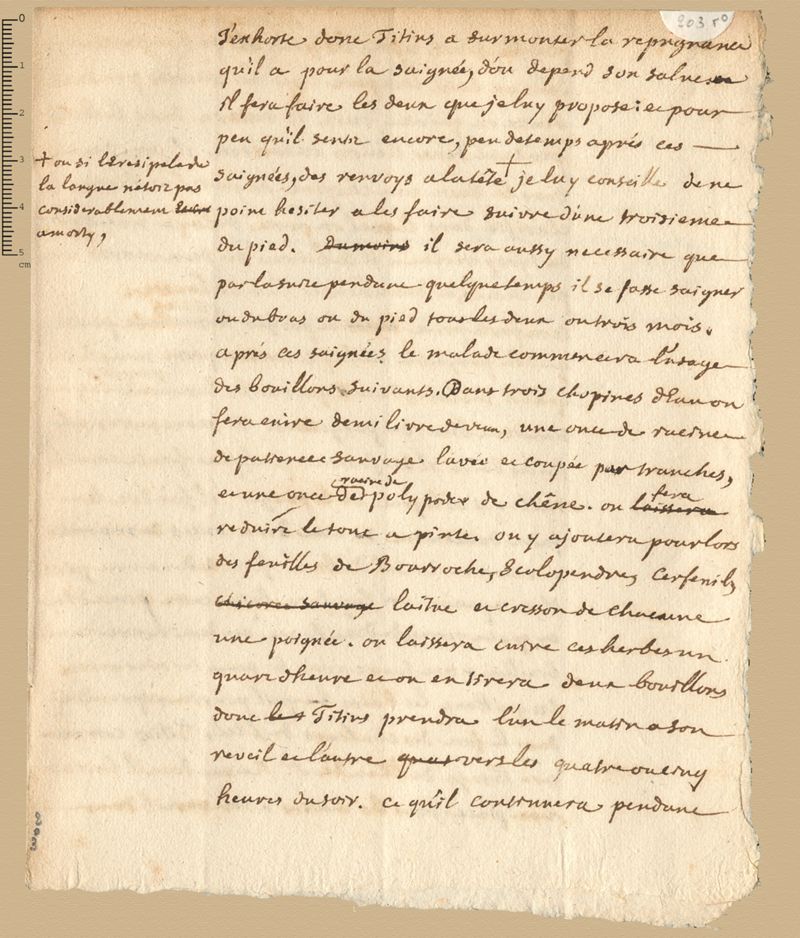 203 r°
J'exhorte donc Titius a surmonter la repugnance
qu'il a pour la saignée, d'ou depend son salut
il fera faire les deux que je luy propose: et pour
peu qu'il sente encore, peu de temps aprés ces
saignées, des renvoys a la tête + je luy conseille de ne
+ ou si l'eresipele de
la langue n'etoit pas
considerablement
amorty,
point hesiter a les faire suivre d'une troisieme
du pied. du moins il sera aussy necessaire que
par la suite pendant quelque temps il se fasse saigner
ou du bras ou du pied tous les deux ou trois mois.
aprés ces saignées le malade commencera l'usage
des bouillons suivants. Dans trois chopines d'Eau on
fera cuire demi livre de veau, une once de racine
de patience sauvage lavée et coupée par tranches,
et une once des racine de polypode de chêne. on laissera fera
reduire le tout a pinte. on y ajoutera pour lors
des feuilles de Bourroche, Scolopendre, Cerfeuil,
chicorée sauvage laitue et cresson de chacune
une poignée. on laissera cuire ces herbes un
quart d'heure et on en tirera deux bouillons
dont les Titius prendra l'un le matin a son
reveil et l'autre vers les quatre ou cinq
heures du soir. ce qu'il continuera pendant